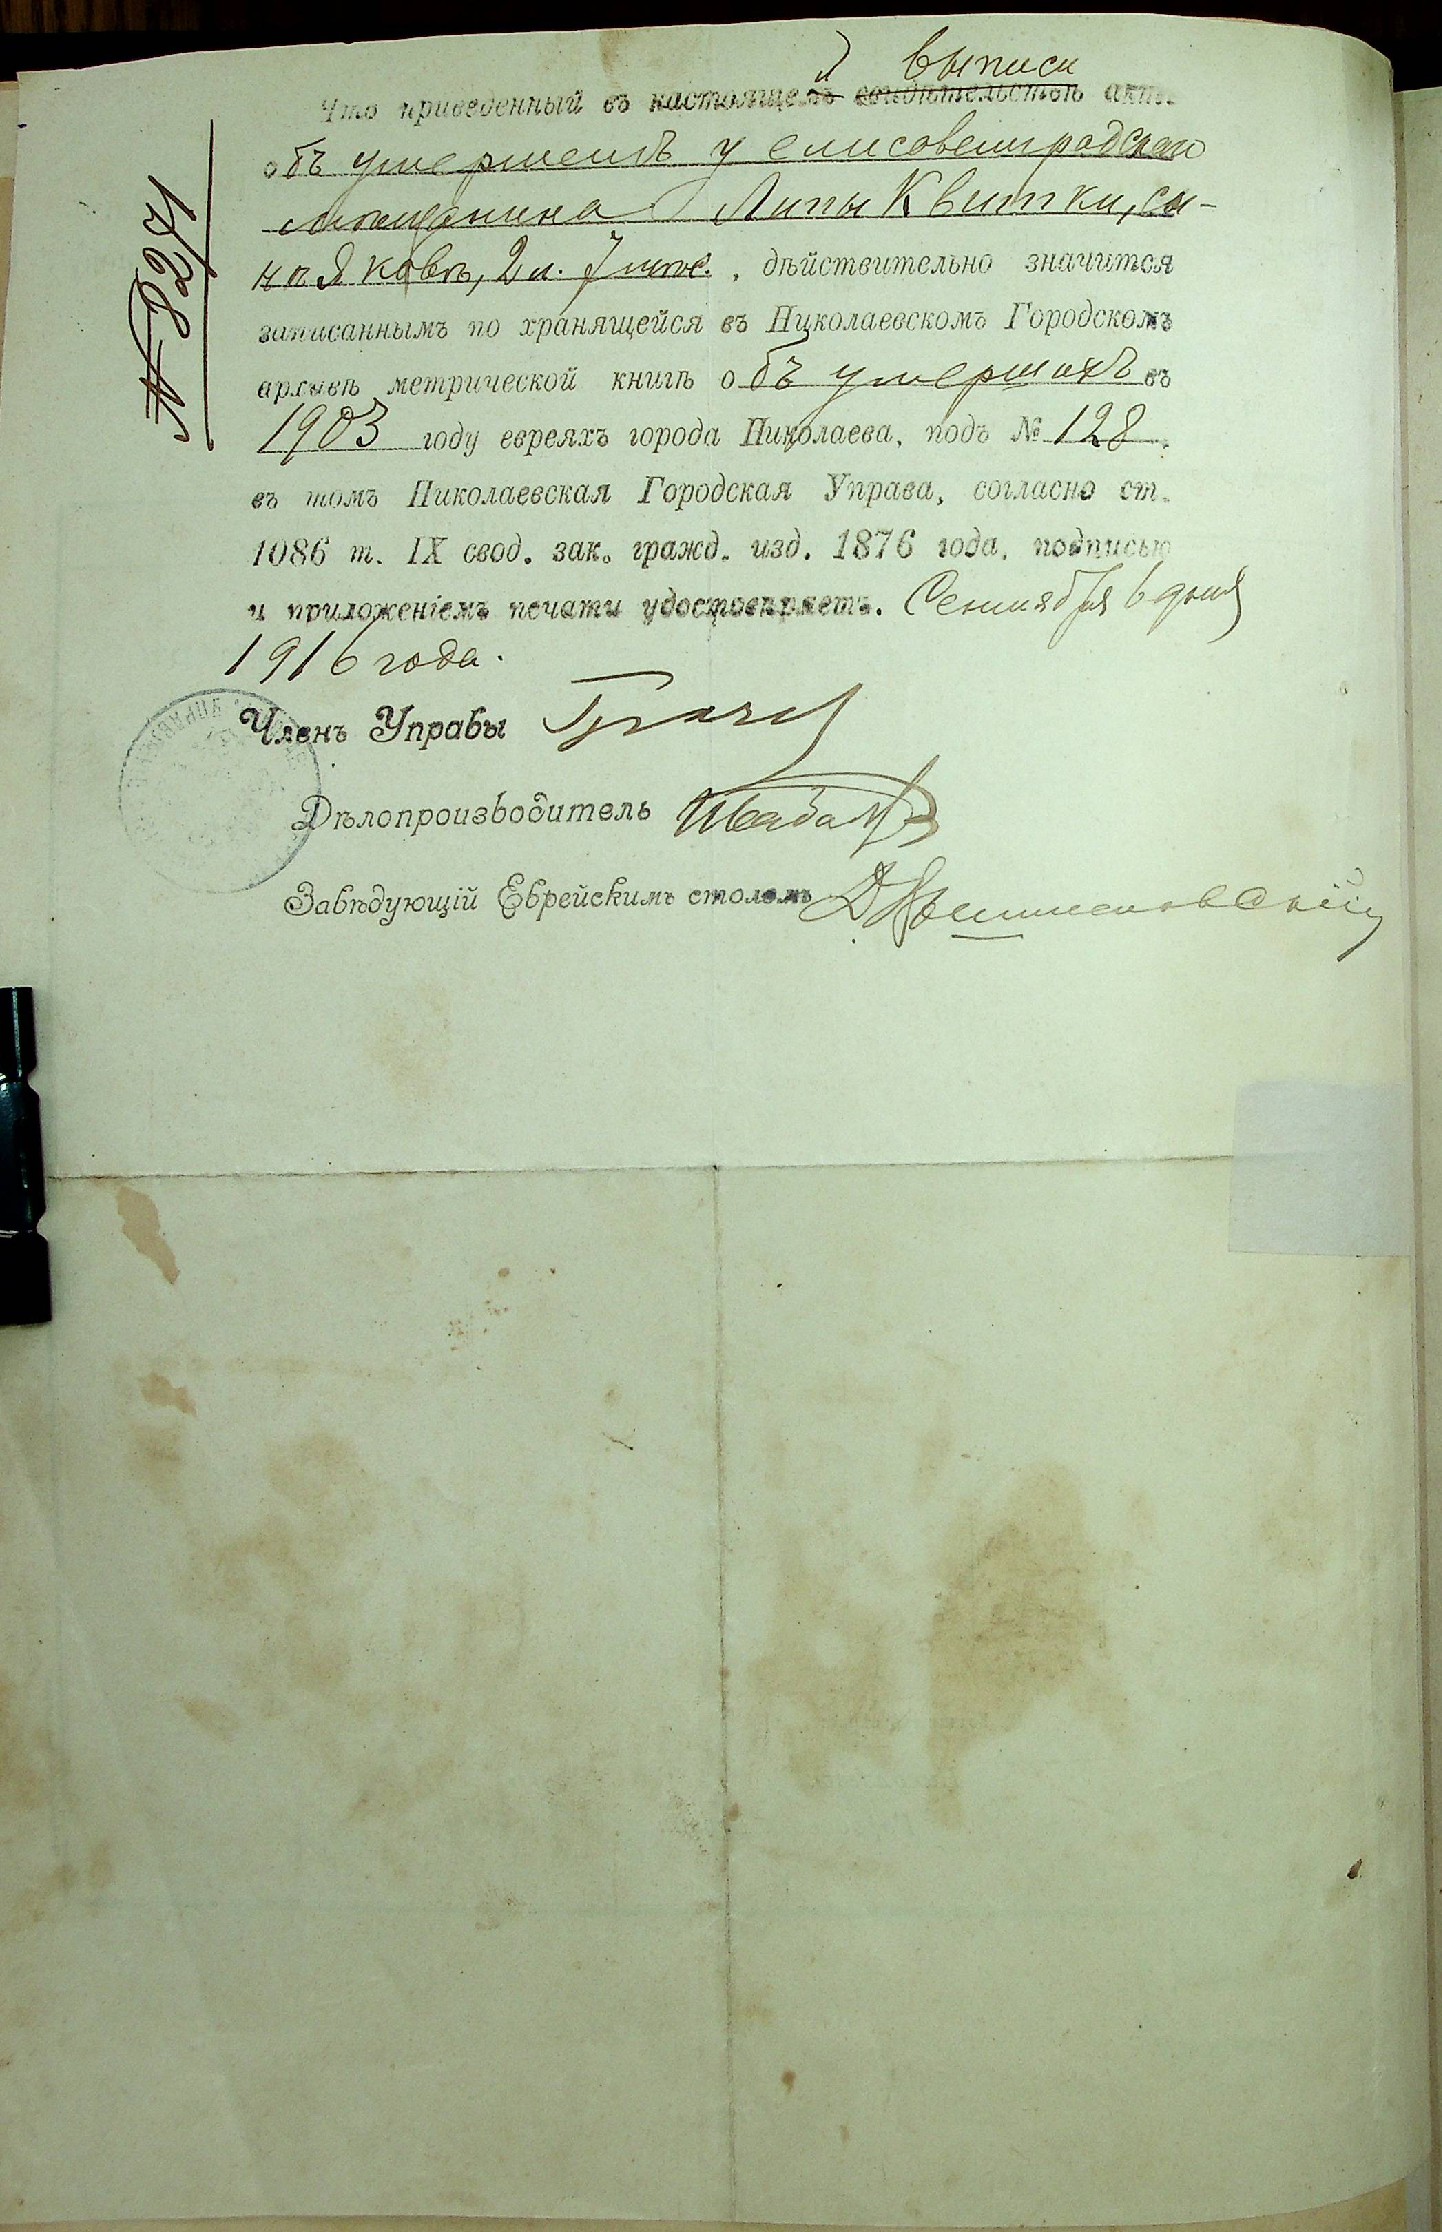 выписи
Что приведенный въ настоящемъ й свидѣтельствѣ актъ
объ умершемъ у елисоветградскаго
мѣщанина Липы Квитки, сы-
нѣ Яковѣ, 2 л. 7 мѣс., дѣйствительно значится
записаннымъ по хранящейся въ Николаевскомъ Городскомъ
архивѣ метрической книгѣ объ умершихъ въ
1903 году евреяхъ города Николаева, подъ № 128,
въ томъ Николаевская Городская Управа, согласно ст.
1086 т. IX свод. зак. гражд. изд. 1876 года, подписью
и приложеніемъ печати удостовѣряетъ. Сентября 6 дня
1916 года.
Членъ Управы
Дѣлопроизводитель
Завѣдующій Еврейскимъ столомъ
№ 8271